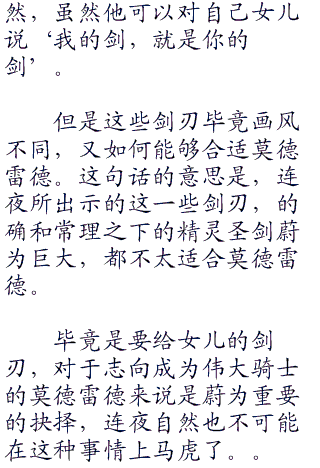 然，虽然他可以对自己女儿
说‘我的剑，就是你的
剑’。
但是这些剑刃毕竟画风
不同，又如何能够合适莫德
雷德。这句话的意思是，连
夜所出示的这一些剑刃，的
确和常理之下的精灵圣剑蔚
为巨大，都不太适合莫德雷
德。
毕竟是要给女儿的剑
刃，对于志向成为伟大骑士
的莫德雷德来说是蔚为重要
的抉择，连夜自然也不可能
在这种事情上马虎了。。